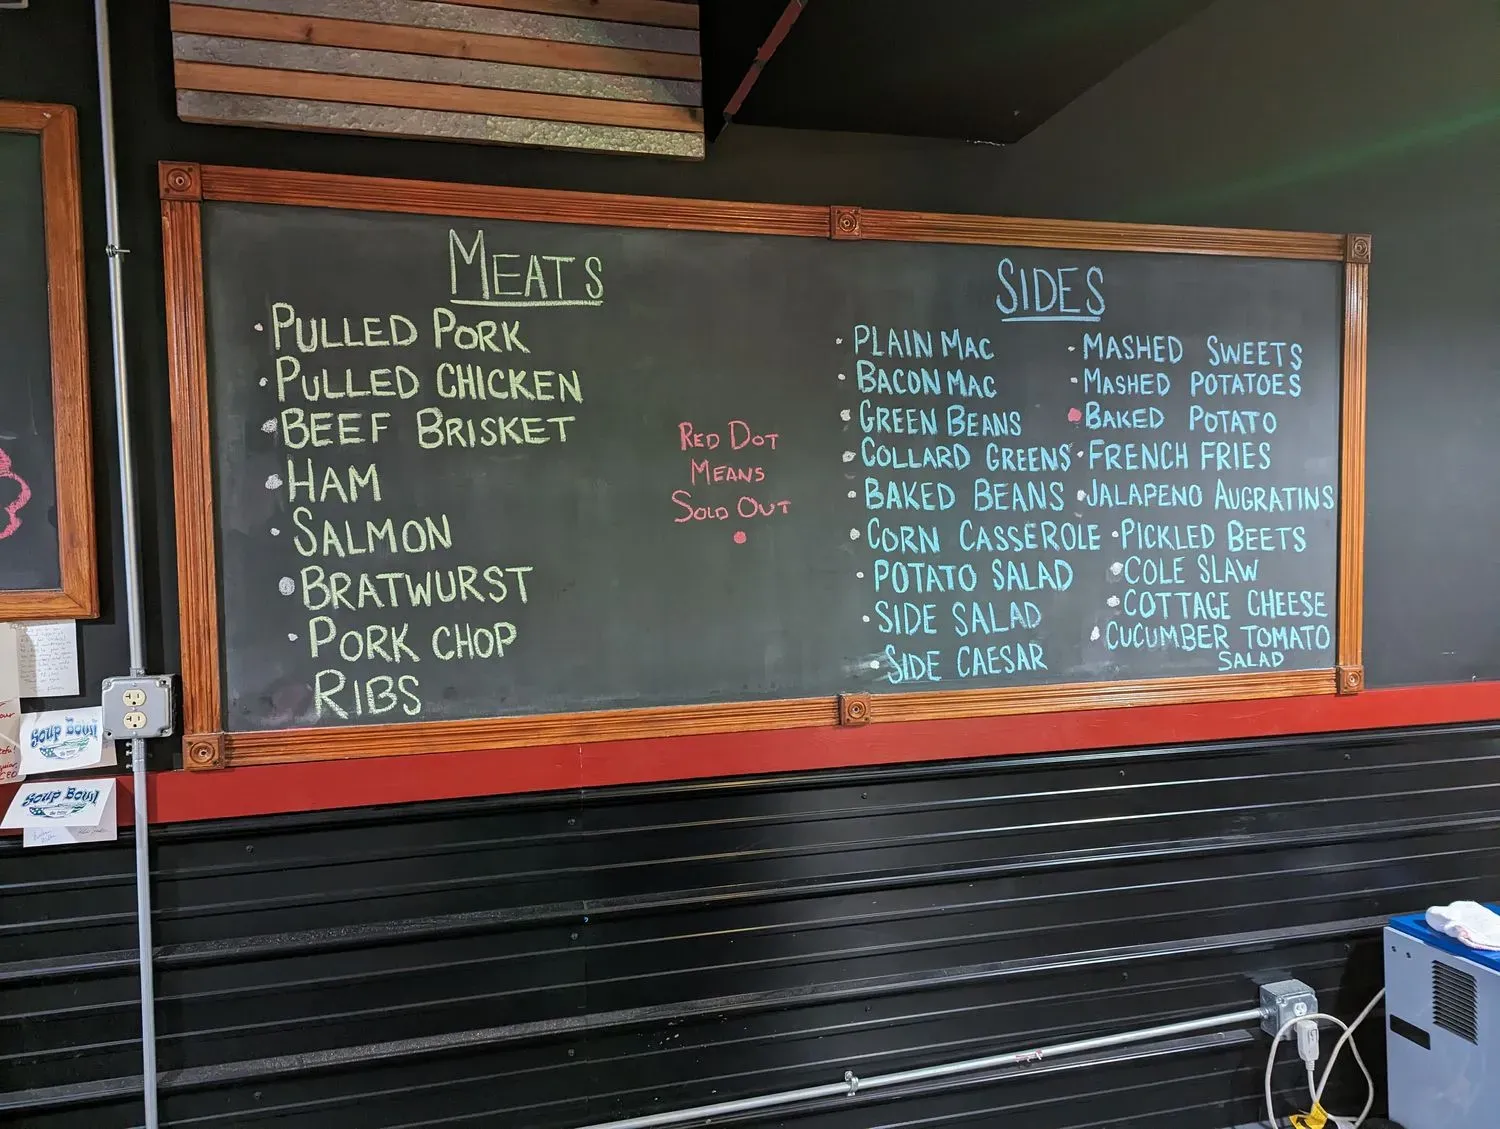 MEATS
· PULLED PORK
· PULLED CHICKEN
· BEEF BRISKET
· HAM
· SALMON
· BRATWURST
· PORK CHOP
RIBS
RED DOT
MEANS
SOLD OUT
SIDES
· PLAIN MAC
· BACON MAC
· GREEN BEANS
· COLLARD GREENS
· BAKED BEANS
· CORN CASSEROLE
· POTATO SALAD
· SIDE SALAD
· SIDE CAESAR
· MASHED SWEETS
· MASHED POTATOES
· BAKED POTATO
· FRENCH FRIES
· JALAPENO AUGRATINS
· PICKLED BEETS
· COLE SLAW
· COTTAGE CHEESE
· CUCUMBER TOMATO
SALAD
Soup Bowl
Soup Bowl
CEO